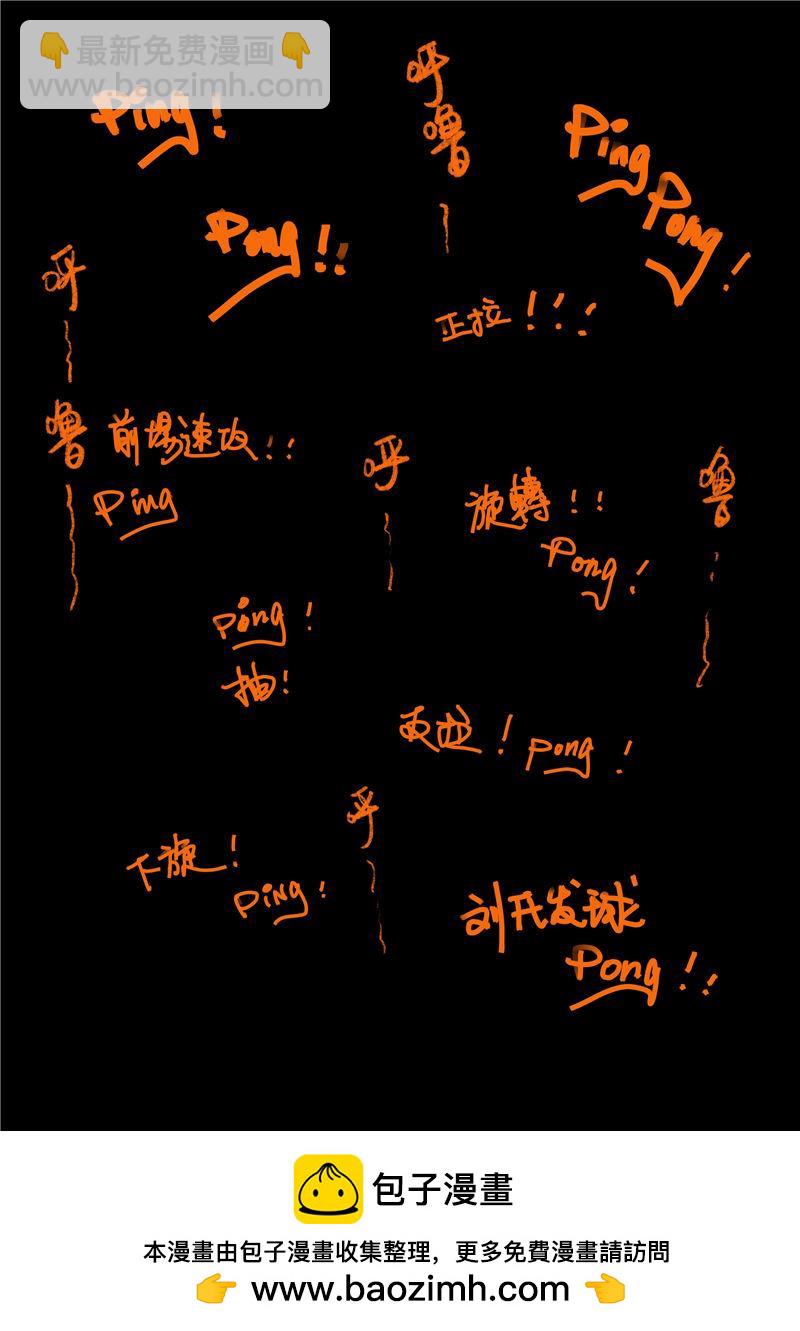 👇最新免费漫画👇
www.baozimh.com
Ping!
呼噜
Ping
Pong!
Pong!!
呼
正拉!!!
噜
前場速攻!!
Ping
呼
旋轉!!
噜
Pong!
Ping!
抽!
反拉! Pong!
呼
下旋!
Ping!
刘氏发球
Pong!!
包子漫畫
本漫畫由包子漫畫收集整理，更多免費漫畫請訪問
👉 www.baozimh.com 👈